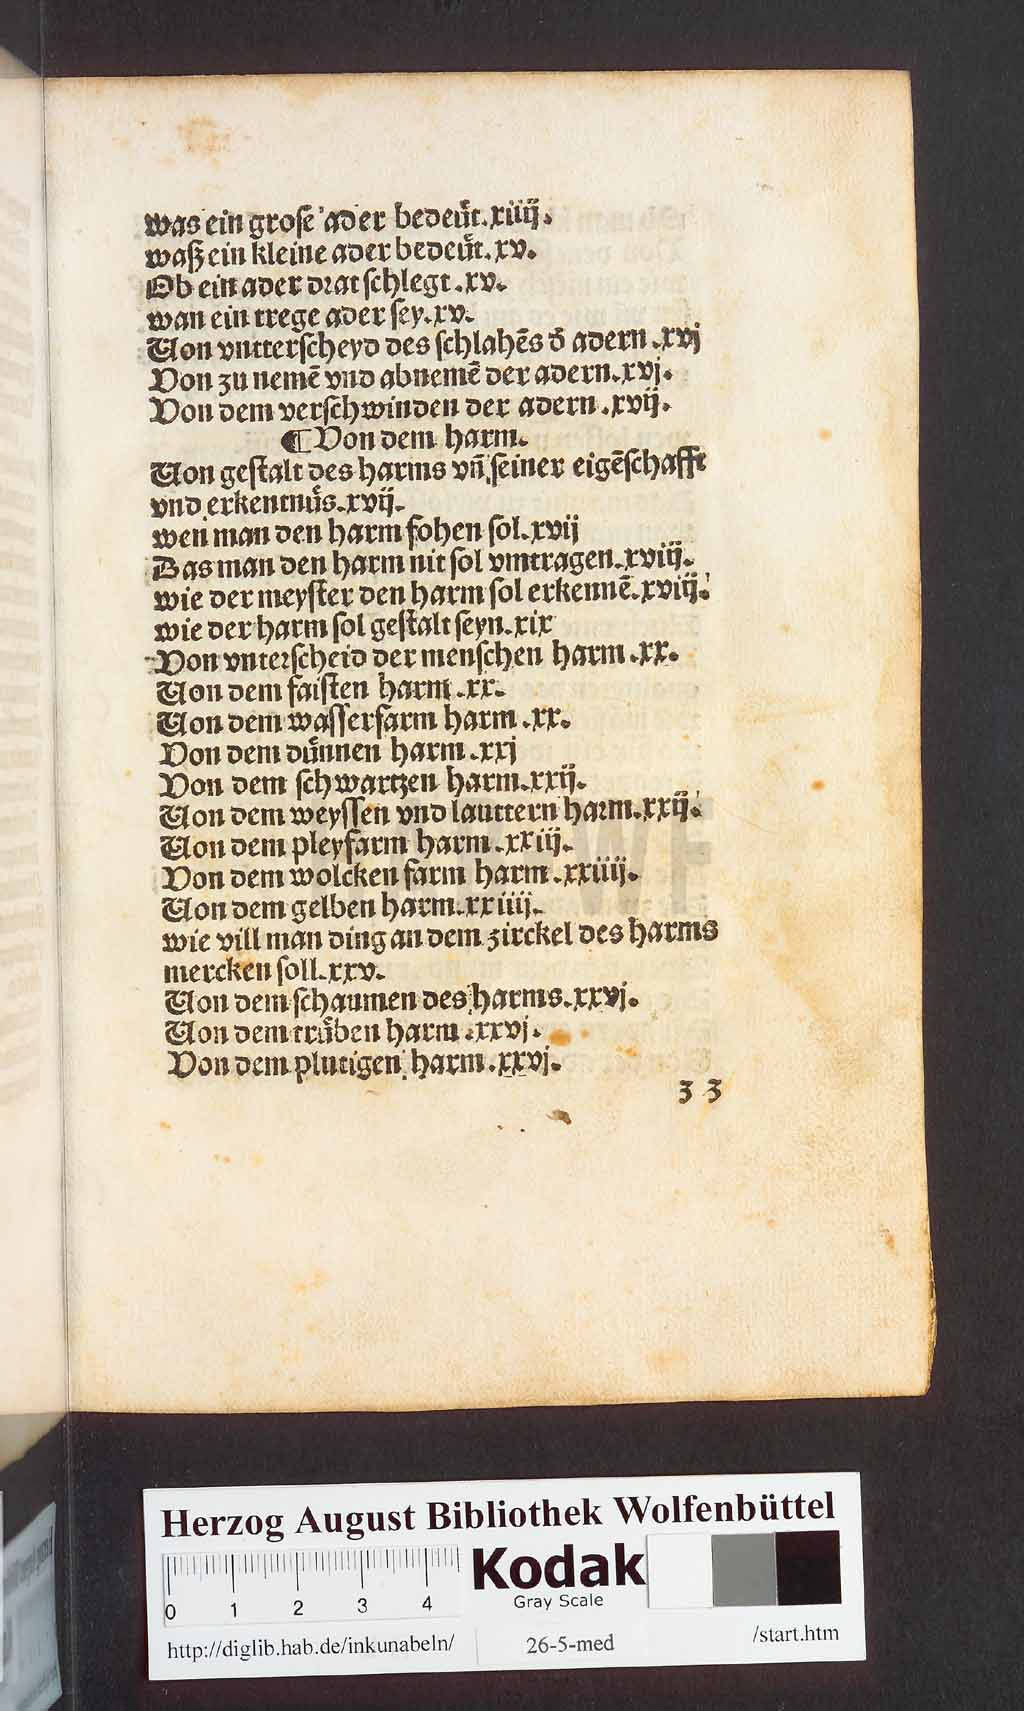 was ein groſe ader bedeuͤt.xiiij.
waß ein kleine ader bedeuͤt.xv.
Ob ein ader drat ſchlegt.xv.
wan ein trege ader ſey.xv.
Von vntterſcheyd des ſchlahēs d̄ adern.xvj
Von zu nemē vnd abnemē der adern.xvj.
Von dem verſchwinden der adern.xvij.
¶ Von dem harm.
Von geſtalt des harms vn̄ ſeiner eigēſchafft
vnd erkentnuͤs.xvij.
wen man den harm fohen ſol.xvij
Das man den harm nit ſol vmtragen.xviij.
wie der meyſter den harm ſol erkennē.xviij.
wie der harm ſol geſtalt ſeyn.xix
Von vnterſcheid der menſchen harm.xx.
Von dem faiſten harm.xx.
Von dem waſſerfarm harm.xx.
Von dem duͤnnen harm.xxj
Von dem ſchwartzen harm.xxij.
Von dem weyſſen vnd lauttern harm.xxij.
Von dem pleyfarm harm.xxiij.
Von dem wolcken farm harm.xxiiij.
Von dem gelben harm.xxiiij.
wie vill man ding an dem zirckel des harms
mercken ſoll.xxv.
Von dem ſchaumen des harms.xxvj.
Von dem truͤben harm.xxvj.
Von dem plutigen harm.xxvj.
3 3
Herzog August Bibliothek Wolfenbüttel
0 1 2 3 4
Kodak
Gray Scale
http://diglib.hab.de/inkunabeln/ 26-5-med /start.htm